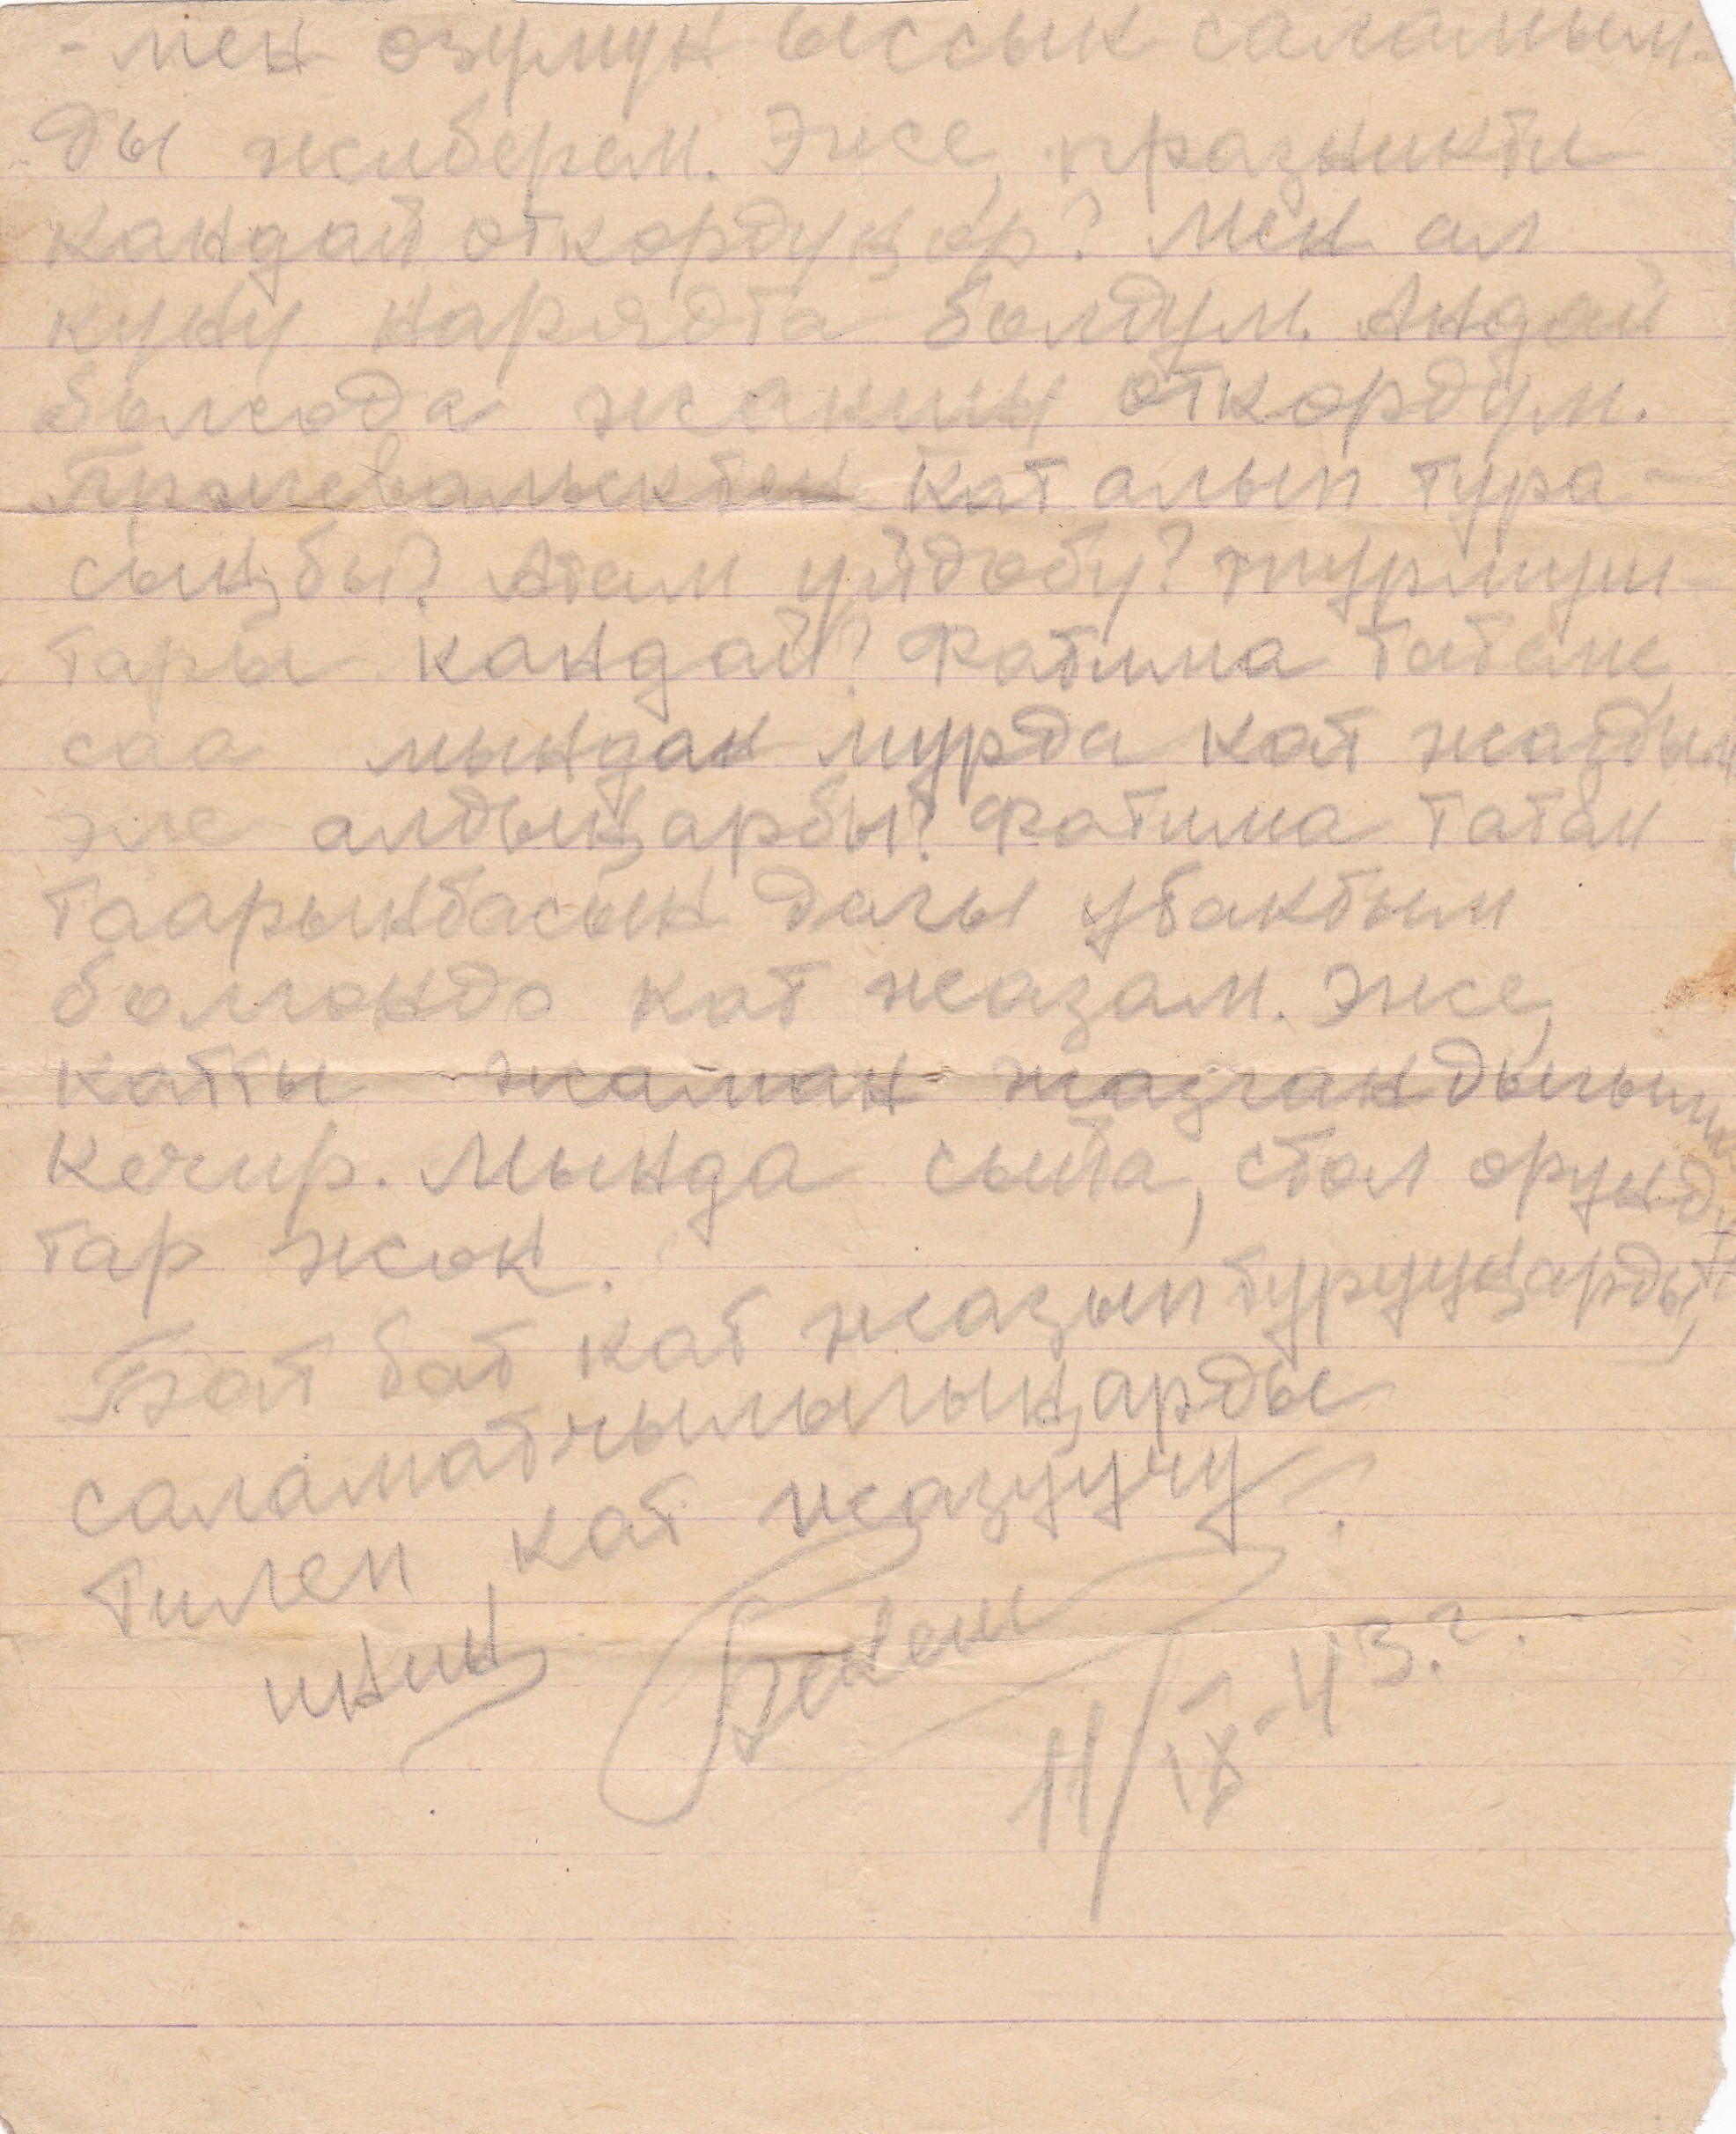 - мен өзүмүн ыссык саламым-
ды жиберем. Эже, празникти
кандай өткөрдүңөр? Мен ал
күнү нарядта болдум. Андай
болсода жакшы өткөрдүм.
Пржевальсктен кат алып тура-
сыңбы? Атам үйдөбү? турмуш
тары кандай? Фатима татаме,
саа мындан мурда кат жаздым
эле алдыңарбы? Фатима татам
таарынбасын дагы убактым
болгондо кат жазам. Эже,
катты жаман жазгандыгымы
кечир. Мында сыйа, стол орунд
тар жок.
Бат бат кат жазып туруңарды,
саламатчылыгыңарды
тилеп кат жазуучу
иниң Бекен
11/IX-43.г.